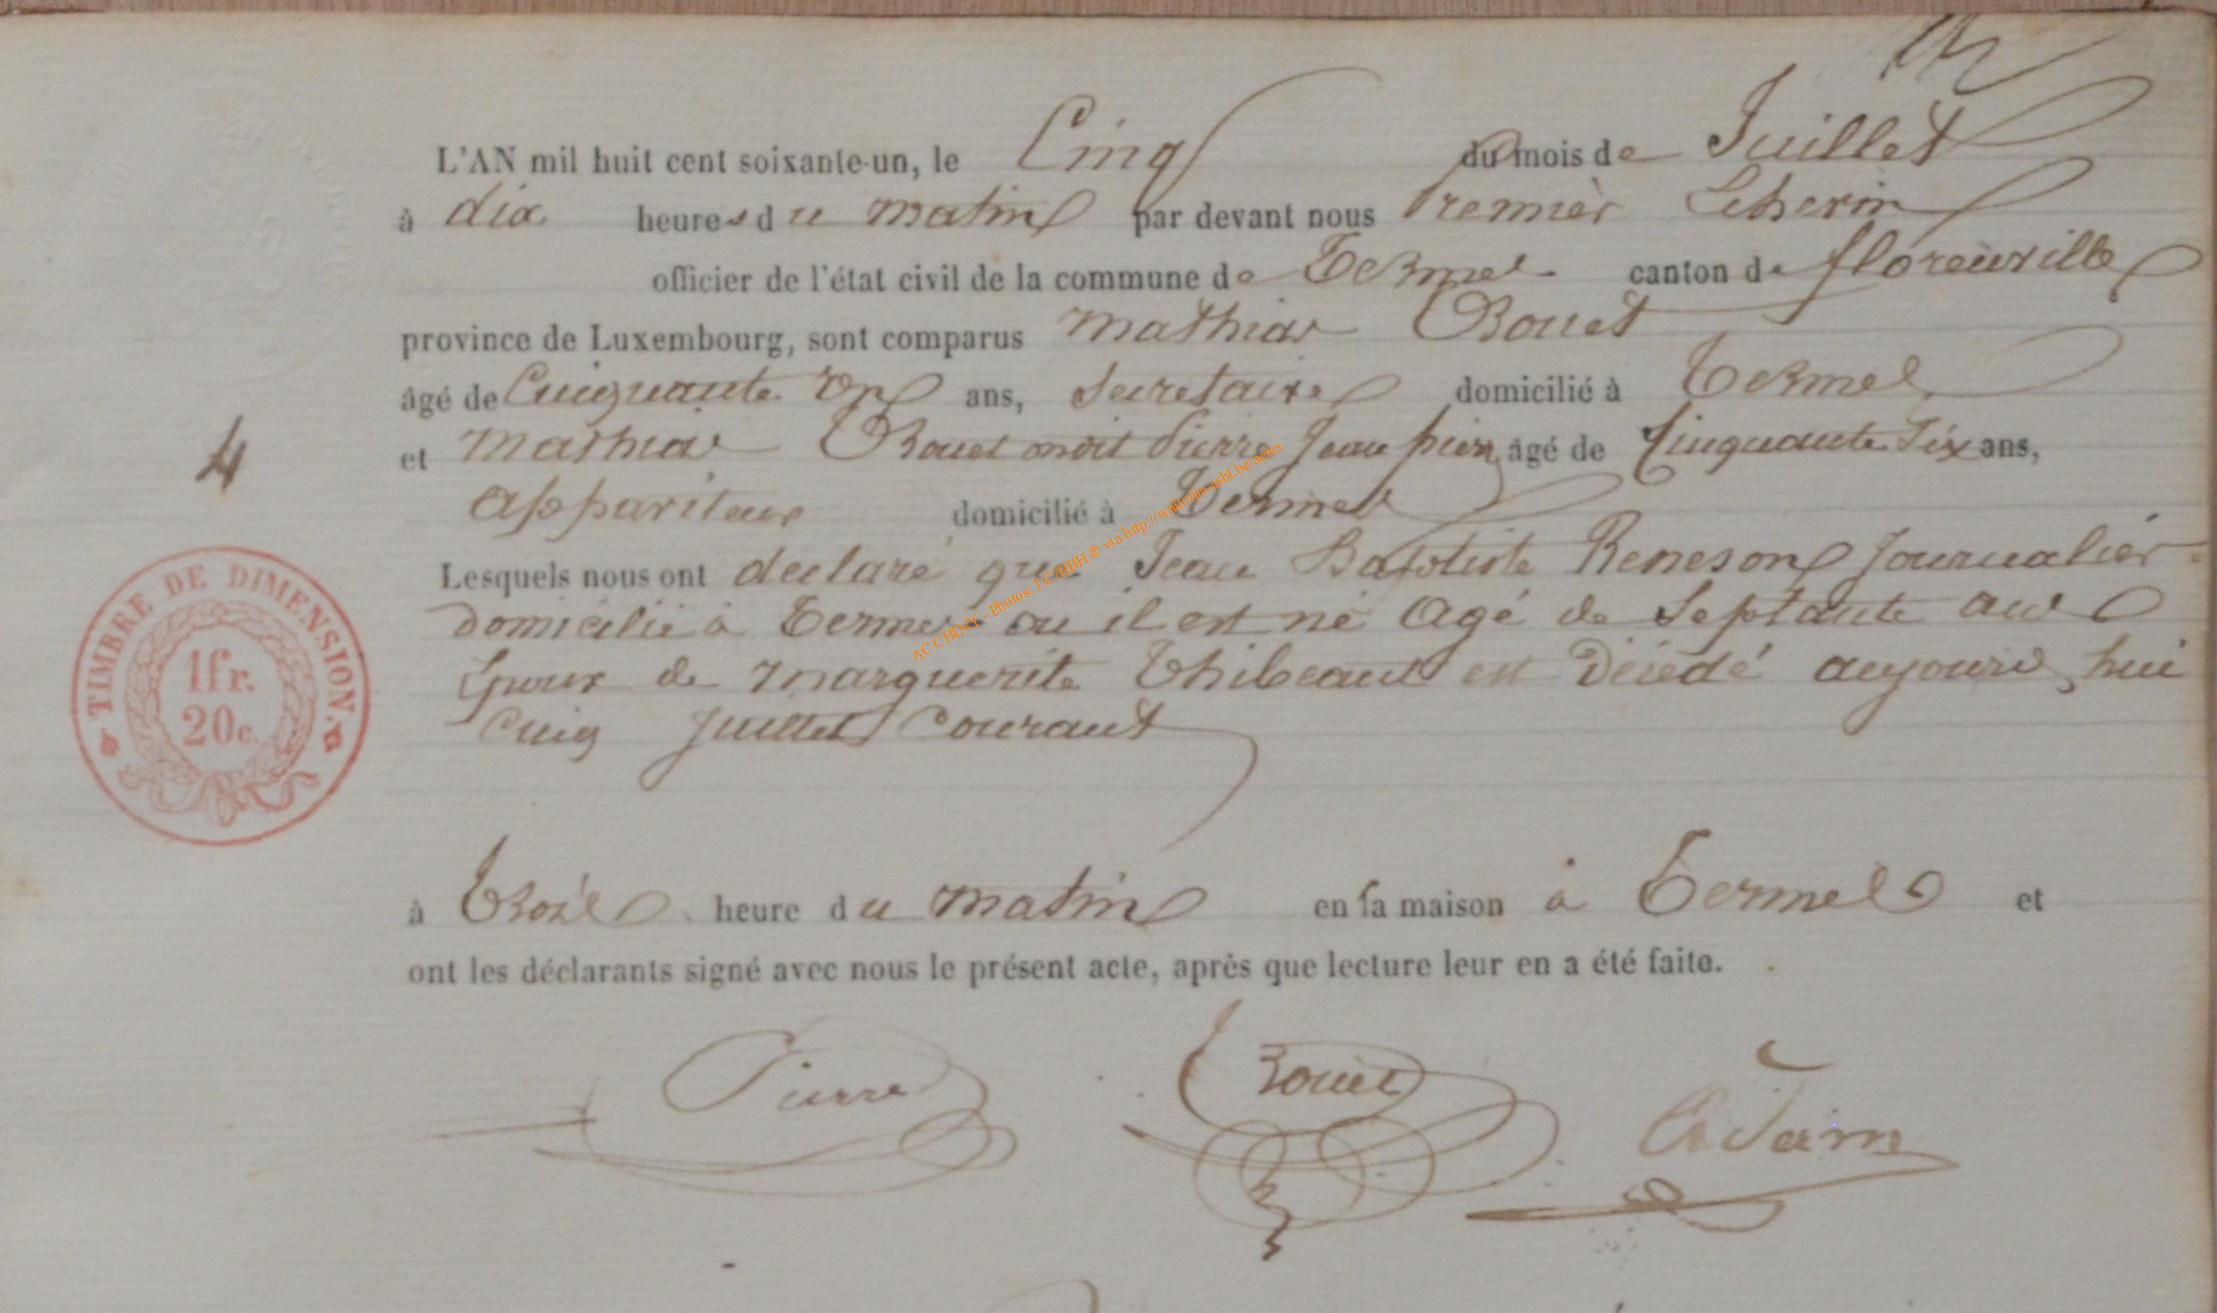 L'AN mil huit cent soixante-un, le Cinq du mois de Juillet
à dix heures du matin par devant nous Premier Echevin
officier de l'état civil de la commune de Termes canton de florenville
province de Luxembourg, sont comparus mathias Bouet
âgé de Cinquante un ans, Secretaire domicilié à Termes
4
et mathias Bouet Pierre Jean pierre âgé de Cinquante Six ans,
appariteur domicilié à Termes
Lesquels nous ont declaré que Jean Baptiste Reneson Journalier
domicilié à Termes ou il est né Agé de Septante ans
Epoux de marguerite Thibeaut est Décedé aujourd hui
Cinq Juillet Courant
TIMBRE DE DIMENSION.
1fr.
20c.
à Trois heure du matin en sa maison à Termes et
ont les déclarants signé avec nous le présent acte, après que lecture leur en a été faite.
Pierre Bouet Adam